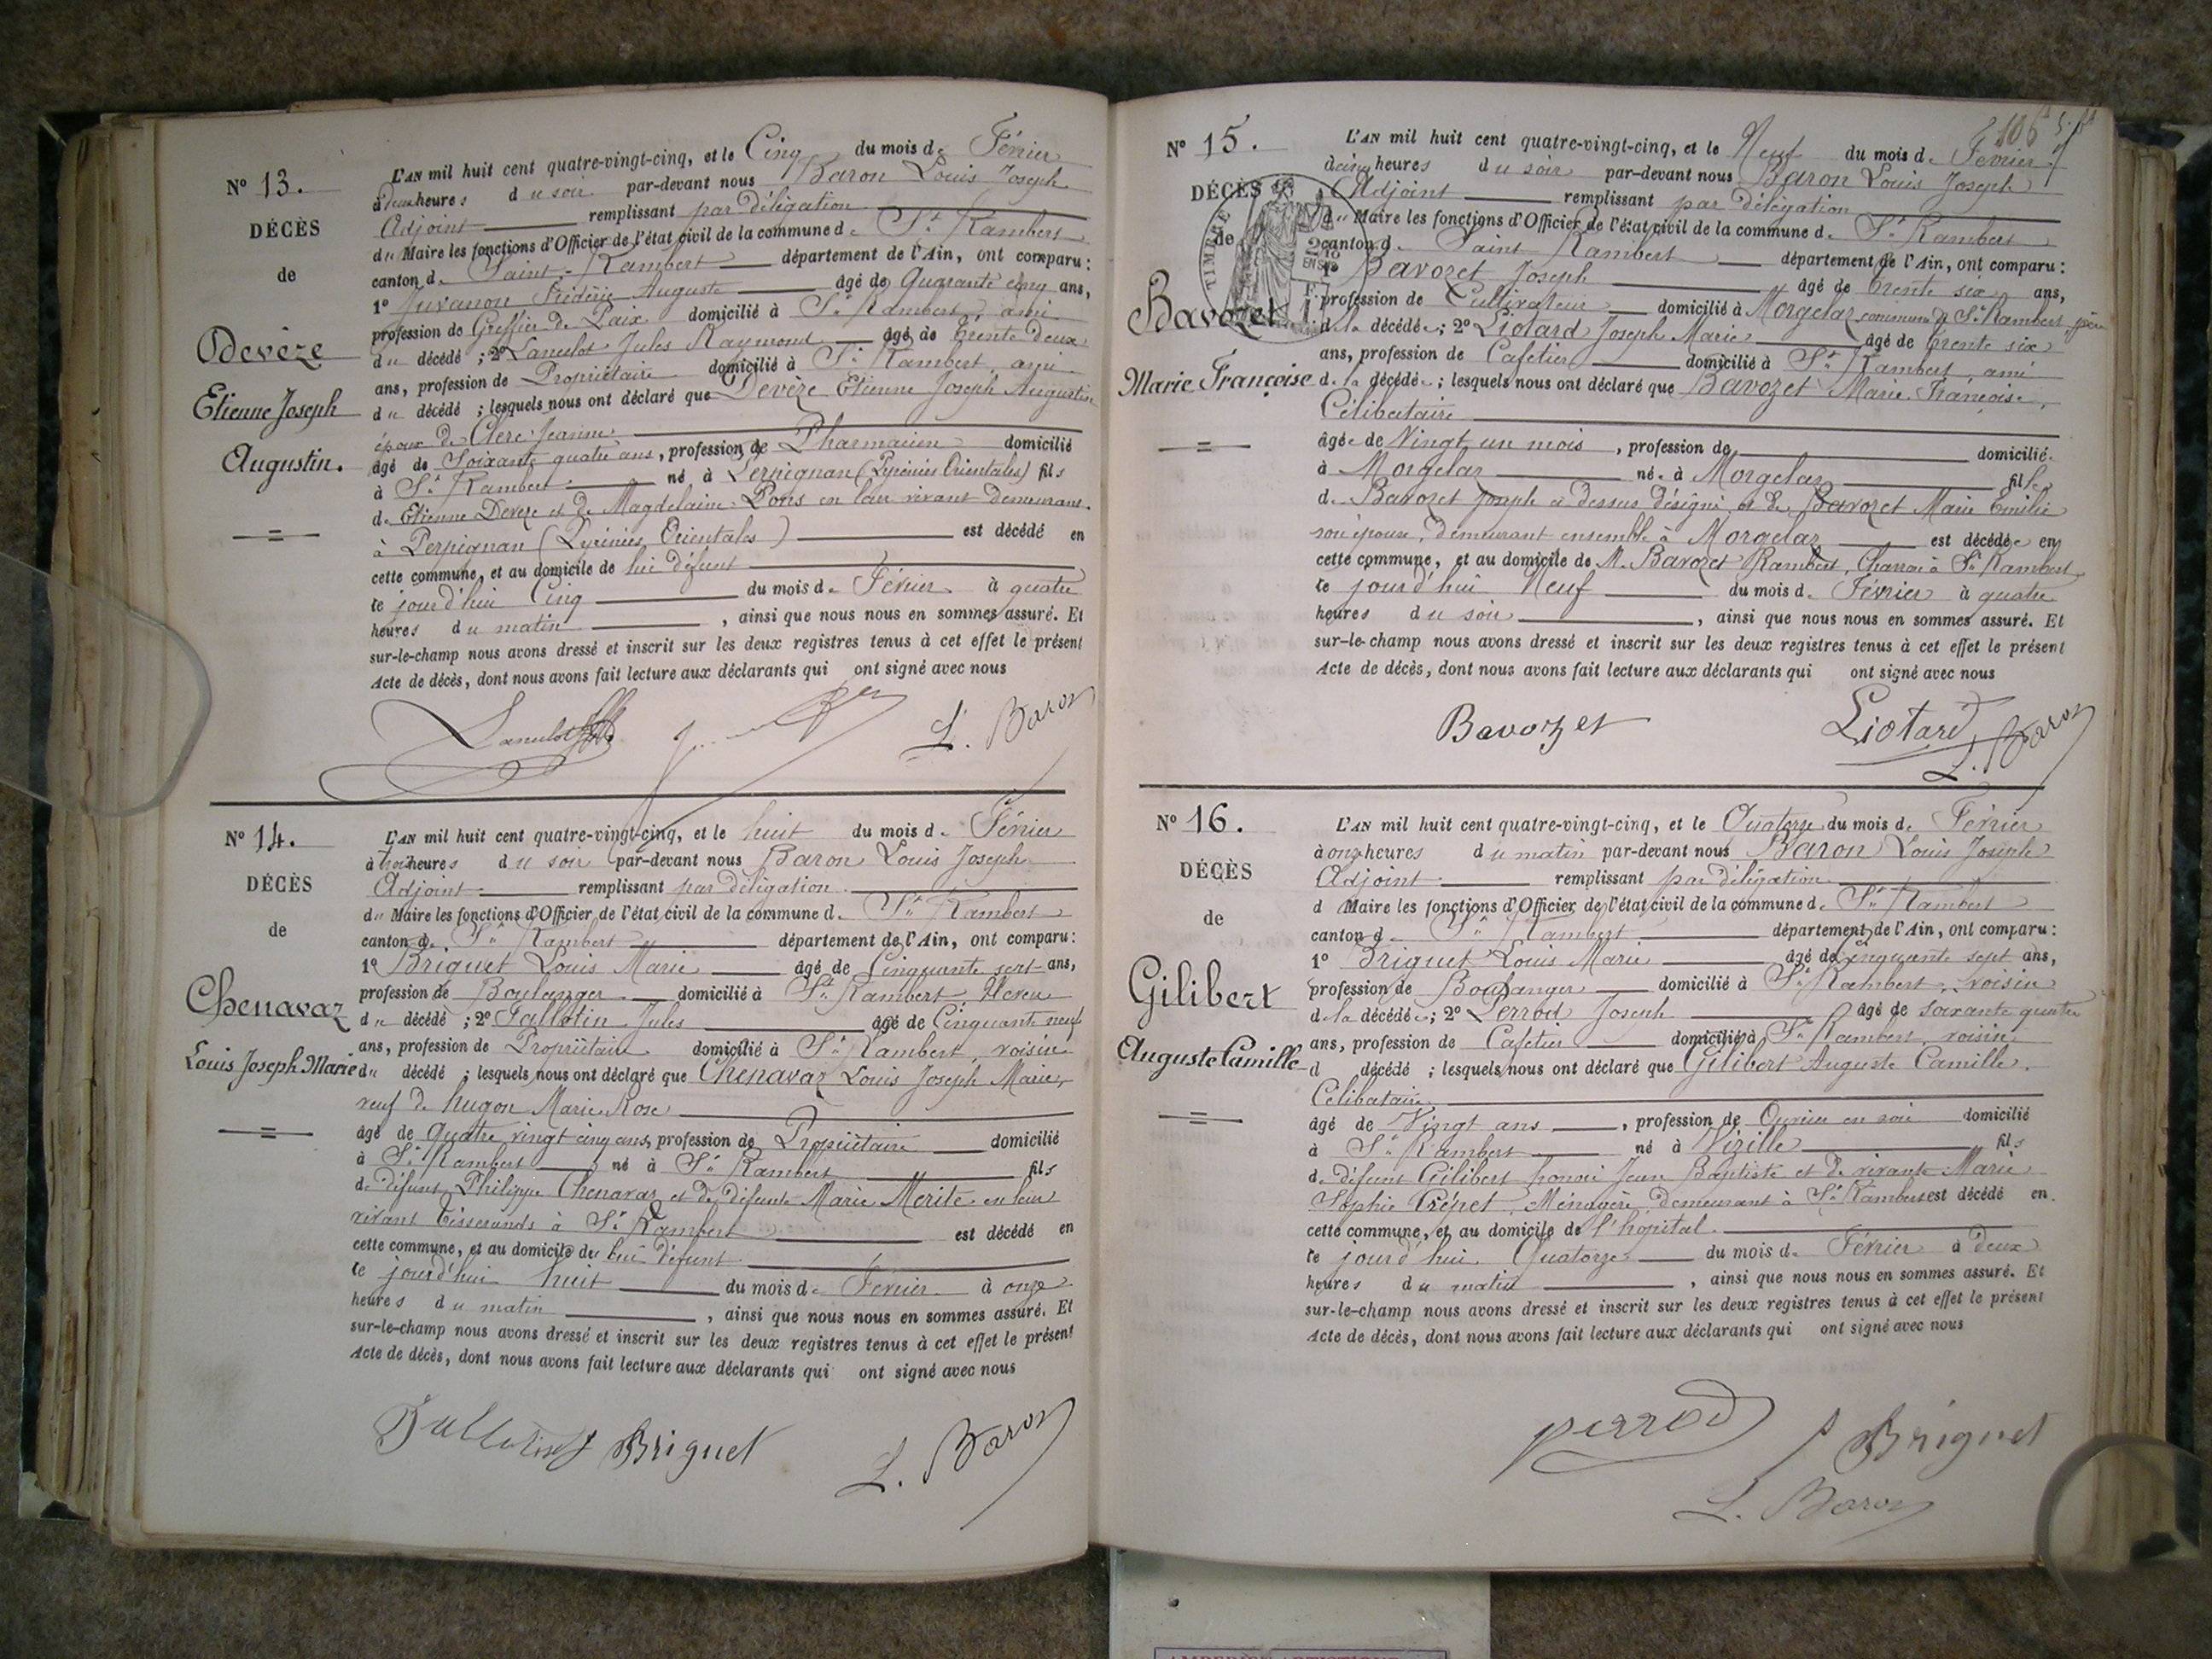 N° 13.
DÉCÈS
de
Devèze
Etienne Joseph
Augustin.
L'AN mil huit cent quatre-vingt-cinq, et le Cinq du mois de Février
à deux heures du soir par-devant nous Baron Louis Joseph
Adjoint remplissant par délégation
du Maire les fonctions d'Officier de l'état civil de la commune de St Rambert
canton de Saint-Rambert département de l'Ain, ont comparu:
1° Juvanon Frédéric Auguste âgé de Quarante cinq ans,
profession de Greffier de Paix domicilié à St Rambert, ami
du décédé; 2° Lancelot Jules Raymond âgé de Trente deux
ans, profession de Propriétaire domicilié à St Rambert, ami
du décédé; lesquels nous ont déclaré que Devèze Etienne Joseph Augustin
époux de Clerc Jeanne
âgé de Soixante quatre ans, profession de Pharmacien domicilié
à St Rambert né à Perpignan (Pyrénées Orientales) fils
de Etienne Devèze et de Magdelaine Pons en leur vivant demeurant
à Perpignan (Pyrénées Orientales) est décédé en
cette commune, et au domicile de lui défunt
ce jourd'hui Cinq du mois de Février à quatre
heures du matin, ainsi que nous nous en sommes assuré. Et
sur-le-champ nous avons dressé et inscrit sur les deux registres tenus à cet effet le présent
Acte de décès, dont nous avons fait lecture aux déclarants qui ont signé avec nous
Lancelot L. Baron
N° 14.
DÉCÈS
de
Chenavaz
Louis Joseph Marie
L'AN mil huit cent quatre-vingt-cinq, et le huit du mois de Février
à trois heures du soir par-devant nous Baron Louis Joseph
Adjoint remplissant par délégation
du Maire les fonctions d'Officier de l'état civil de la commune de St Rambert
canton de St Rambert département de l'Ain, ont comparu:
1° Briguet Louis Marie âgé de Cinquante sept ans,
profession de Boulanger domicilié à St Rambert, Neveu
du décédé; 2° Tallotin Jules âgé de Cinquante neuf
ans, profession de Propriétaire domicilié à St Rambert, voisin
du décédé; lesquels nous ont déclaré que Chenavaz Louis Joseph Marie,
veuf de hugon Marie Rose
âgé de quatre vingt cinq ans, profession de Propriétaire domicilié
à St Rambert né à St Rambert fils
de défunt Philippe Chenavaz et de défunte Marie Merite en leur
vivant tisserands à St Rambert est décédé en
cette commune, et au domicile du lui défunt
ce jourd'hui huit du mois de Février à onze
heures du matin, ainsi que nous nous en sommes assuré. Et
sur-le-champ nous avons dressé et inscrit sur les deux registres tenus à cet effet le présent
Acte de décès, dont nous avons fait lecture aux déclarants qui ont signé avec nous
Tallotin J Briguet L. Baron
106
N° 15.
DÉCÈS
de
TIMBRE
Bavozet
Marie Françoise
L'AN mil huit cent quatre-vingt-cinq, et le Neuf du mois de Février
à cinq heures du soir par-devant nous Baron Louis Joseph
Adjoint remplissant par délégation
du Maire les fonctions d'Officier de l'état civil de la commune de St Rambert
canton de Saint Rambert département de l'Ain, ont comparu:
1° Bavozet Joseph âgé de trente six ans,
profession de Cultivateur domicilié à Morgelaz commune de St Rambert, père
de la décédée; 2° Liotard Joseph Marie âgé de trente six
ans, profession de Cafetier domicilié à St Rambert, ami
de la décédée; lesquels nous ont déclaré que Bavozet Marie Françoise,
Célibataire
âgée de Vingt un mois, profession de domicilié
à Morgelaz née à Morgelaz fille
de Bavozet Joseph ci dessus désigné et de Bavozet Marie Emilie
son épouse, demeurant ensemble à Morgelaz est décédée en
cette commune, et au domicile de M. Bavozet Rambert, Charron à St Rambert
ce jourd'hui Neuf du mois de Février à quatre
heures du soir, ainsi que nous nous en sommes assuré. Et
sur-le-champ nous avons dressé et inscrit sur les deux registres tenus à cet effet le présent
Acte de décès, dont nous avons fait lecture aux déclarants qui ont signé avec nous
Bavozet Liotard L. Baron
N° 16.
DÉCÈS
de
Gilibert
Auguste Camille
L'AN mil huit cent quatre-vingt-cinq, et le Quatorze du mois de Février
à onze heures du matin par-devant nous Baron Louis Joseph
Adjoint remplissant par délégation
d Maire les fonctions d'Officier de l'état civil de la commune de St Rambert
canton d St Rambert département de l'Ain, ont comparu:
1° Briguet Louis Marie âgé de Cinquante sept ans,
profession de Boulanger domicilié à St Rambert, voisin
de la décédée; 2° Perrod Joseph âgé de soixante quatre
ans, profession de Cafetier domicilié à St Rambert, voisin
d décédé; lesquels nous ont déclaré que Gilibert Auguste Camille,
Célibataire
âgé de Vingt ans, profession de Ouvrier en soie domicilié
à St Rambert né à Vizille fils
de défunt Gilibert Jean Baptiste et de vivante Marie
Sophie Trépet, Ménagère, demeurant à St Rambert est décédé en
cette commune, et au domicile de l'hopital
ce jourd'hui Quatorze du mois de Février à deux
heures du matin, ainsi que nous nous en sommes assuré. Et
sur-le-champ nous avons dressé et inscrit sur les deux registres tenus à cet effet le présent
Acte de décès, dont nous avons fait lecture aux déclarants qui ont signé avec nous
Perrod Briguet
L. Baron